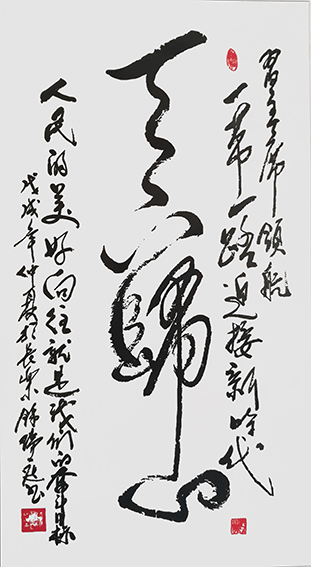 習主席领航
一带一路迎接新时代
天下歸心
人民的美好向往就是我们的奋斗目标
戊戌年仲夏於长乐